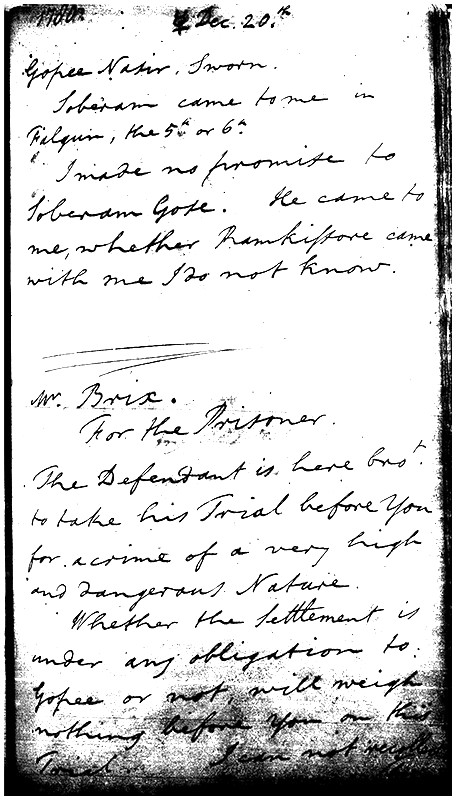 1780.
☿ Dec. 20.th
Gopee Nasir. Sworn.
Soberam came to me in
Falgun, the 5th or 6th
I made no promise to
Soberam Gose. He came to
me, whether Ramkissore came
with me I do not know.
Mr. Brix.
For the Prisoner.
The Defendant is here bro.t
to take his Trial before You
for a crime of a very high
and dangerous Nature.
Whether the Settlement is
under any obligation to
Gopee or not, will weigh
nothing before You on this
Trial. I can not recollect